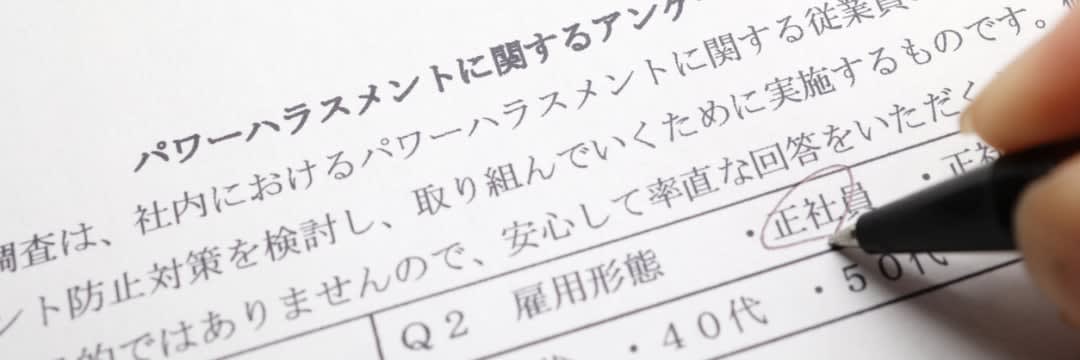 パワーハラスメントに関するアンケ
調査は、社内におけるパワーハラスメントに関する従業員
ント防止対策を検討し、取り組んでいくために実施するものです。
的ではありませんので、安心して率直な回答をいただく
Q2 雇用形態 ・正社員 ・正社
・40代 ・50代